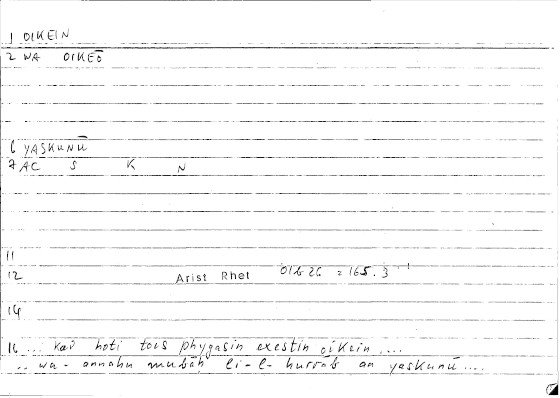 1 OIKEIN
2 WA OIKEŌ
6 YASKUNŪ
7 AC S K N
11
12 Arist Rhet 01b26 = 165.3
14
16 ... kai hoti tois phygasin exestin oikein ....
.. wa-annahu mubāḥ li-l-hurrāb an yaskunū ....